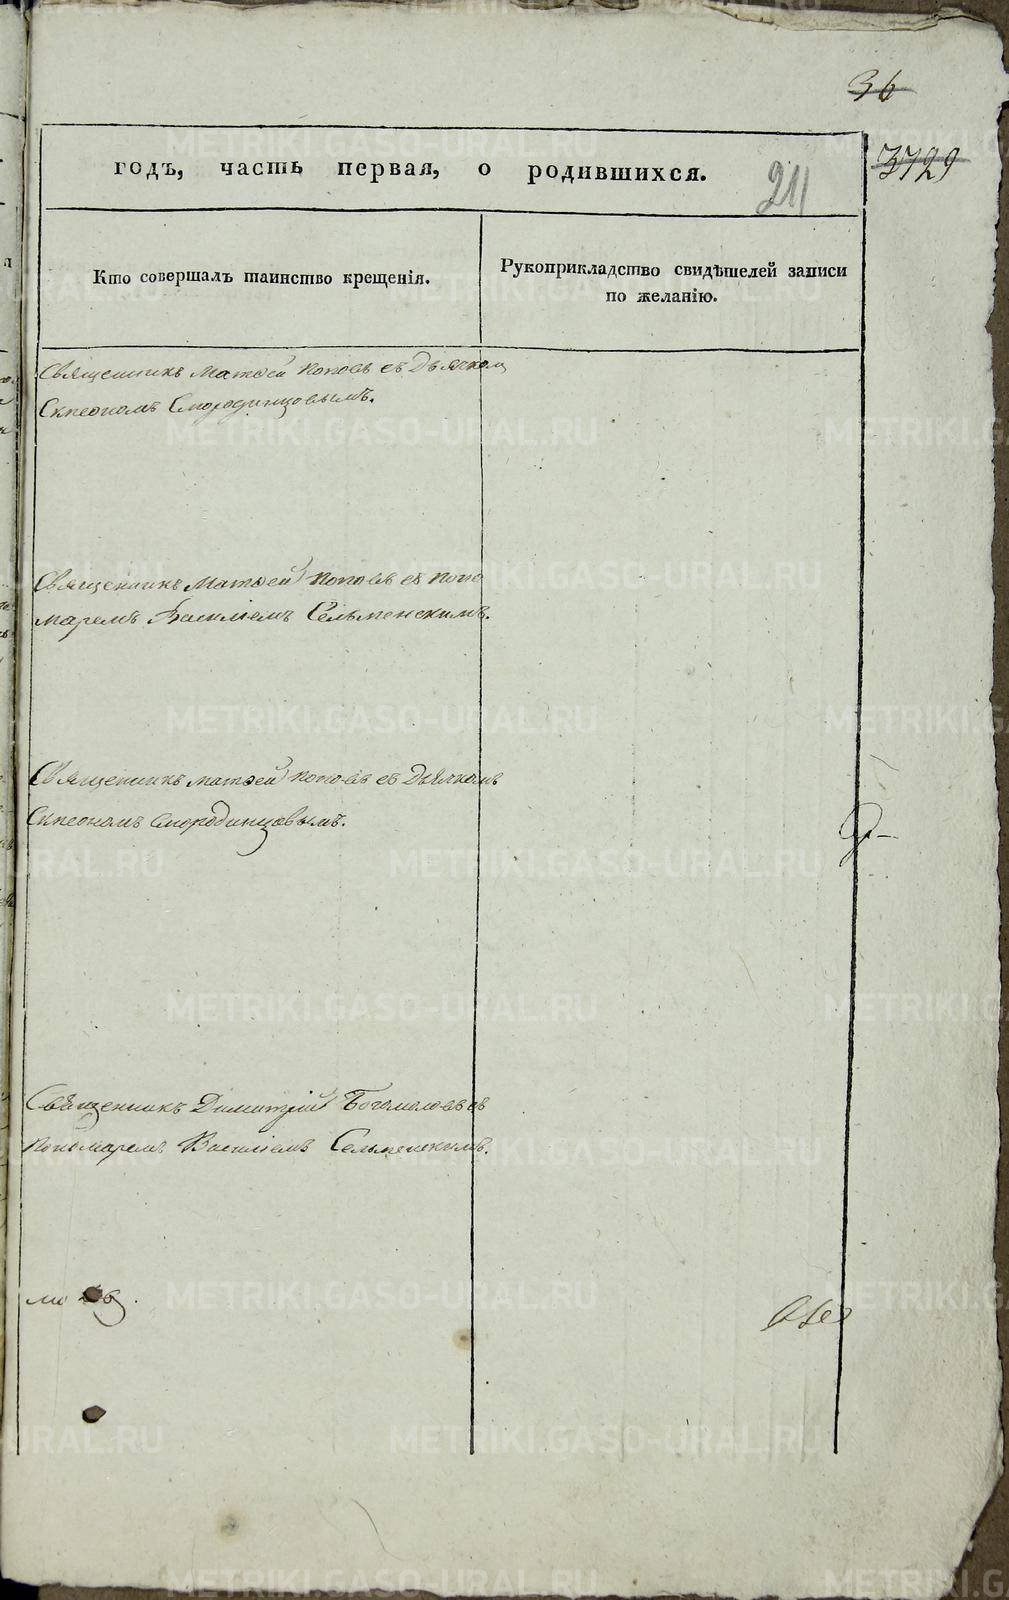 36
3729
годъ, часть первая, о родившихся.
211
Кто совершалъ таинство крещенія.
Рукоприкладство свидѣтелей записи
по желанію.
Священникъ Матѳей Поповъ съ Дьячком
Симеономъ Смородинцовымъ.
Священникъ Матѳей Поповъ съ Поно
маремъ Василіемъ Сельменскимъ.
Священникъ Матѳей Поповъ съ Дьячкомъ
Симеономъ Смородинцовымъ.
Священникъ Димитрій Богомоловъ съ
Пономаремъ Василіемъ Сельменскимъ.
METRIKI.GASO-URAL.RU